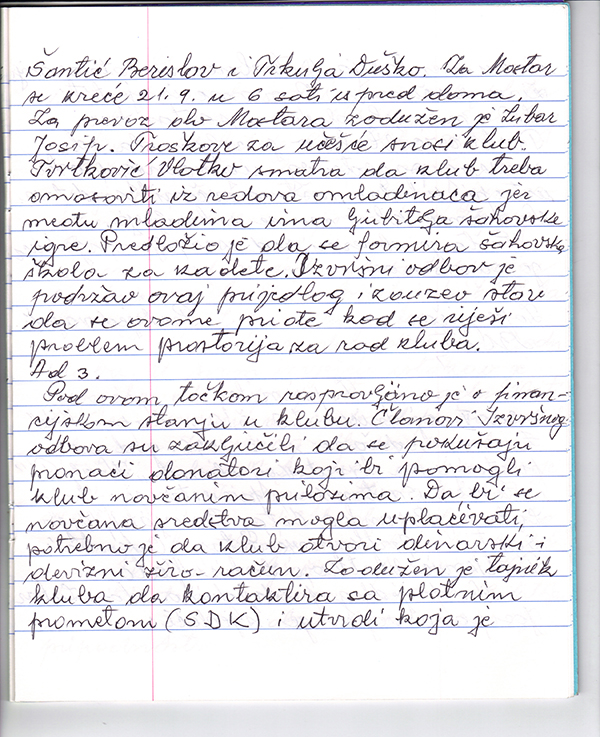 Šantić Berislav i Trkulja Duško. Za Mostar
se kreće 21. 9. u 6 sati ispred doma.
Za prevoz do Mostara zadužen je Lubar
Josip. Troškove za učešće snosi klub.
Tvrtković Vlatko smatra da klub treba
omasoviti iz redova omladinaca jer
među mladima ima ljubitelja šahovske
igre. Predložio je da se formira šahovska
škola za kadete. Izvršni odbor je
podržao ovaj prijedlog i zauzeo stav
da se ovome priđe kad se riješi
problem prostorija za rad kluba.
Ad 3.
Pod ovom točkom raspravljano je o finan-
cijskom stanju u klubu. Članovi Izvršnog
odbora su zaključili da se pokušaju
pronaći donatori koji bi pomogli
klub novčanim prilozima. Da bi se
novčana sredstva mogla uplaćivati,
potrebno je da klub otvori dinarski i
devizni žiro-račun. Zadužen je tajnik
kluba da kontaktira sa platnim
prometom (SDK) i utvrdi koja je